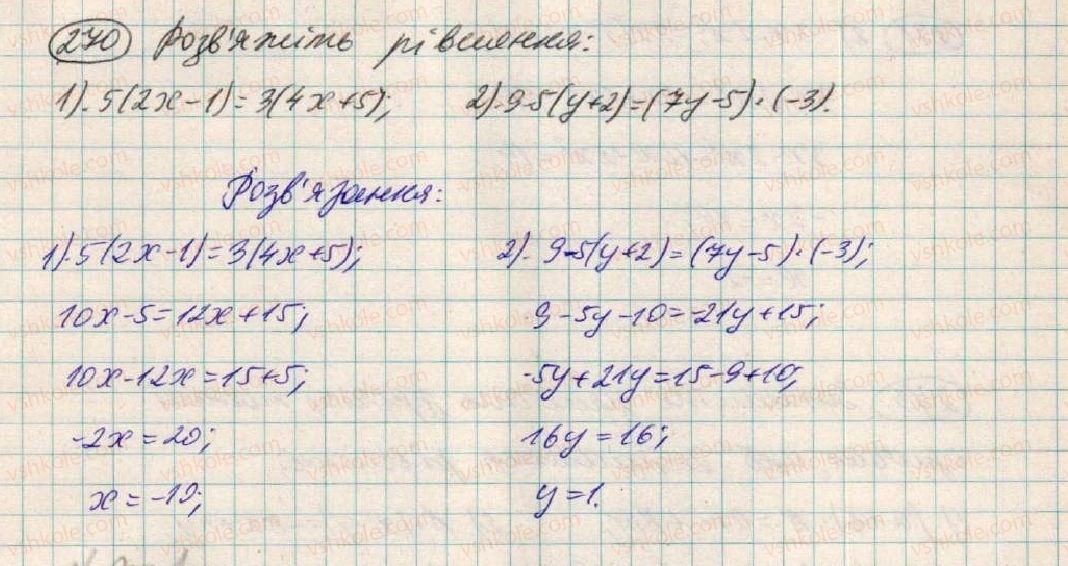 270 Розв'яжіть рівняння:
1). 5(2x-1)=3(4x+5); 2). 9-5(y+2)=(7y-5)·(-3).
Розв'язання:
1). 5(2x-1)=3(4x+5); 2). 9-5(y+2)=(7y-5)·(-3);
10x-5=12x+15; 9-5y-10=-21y+15;
10x-12x=15+5; -5y+21y=15-9+10;
-2x=20; 16y=16;
x=-10; y=1.